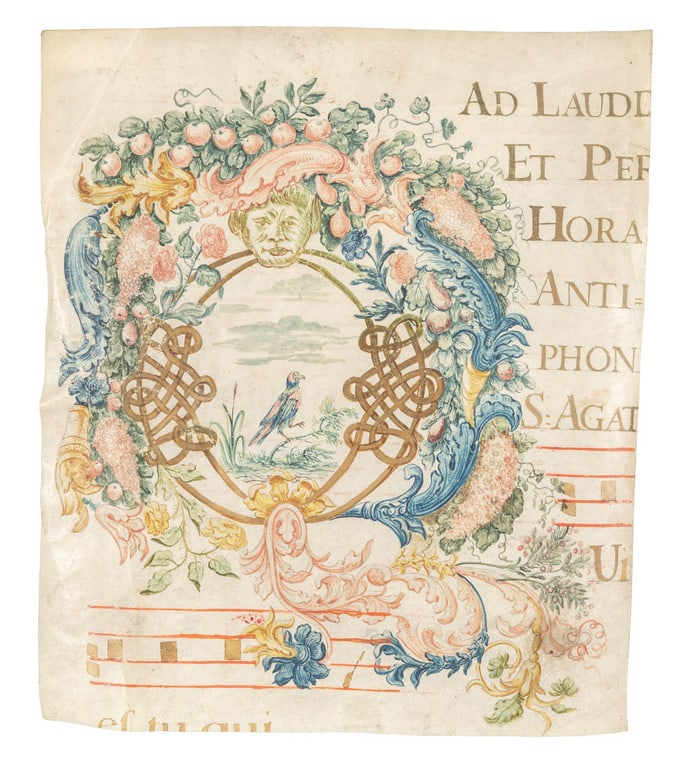 AD LAUDD
ET PER
HORA
ANTI=
PHON
S: AGAT
QUI
es tu qui